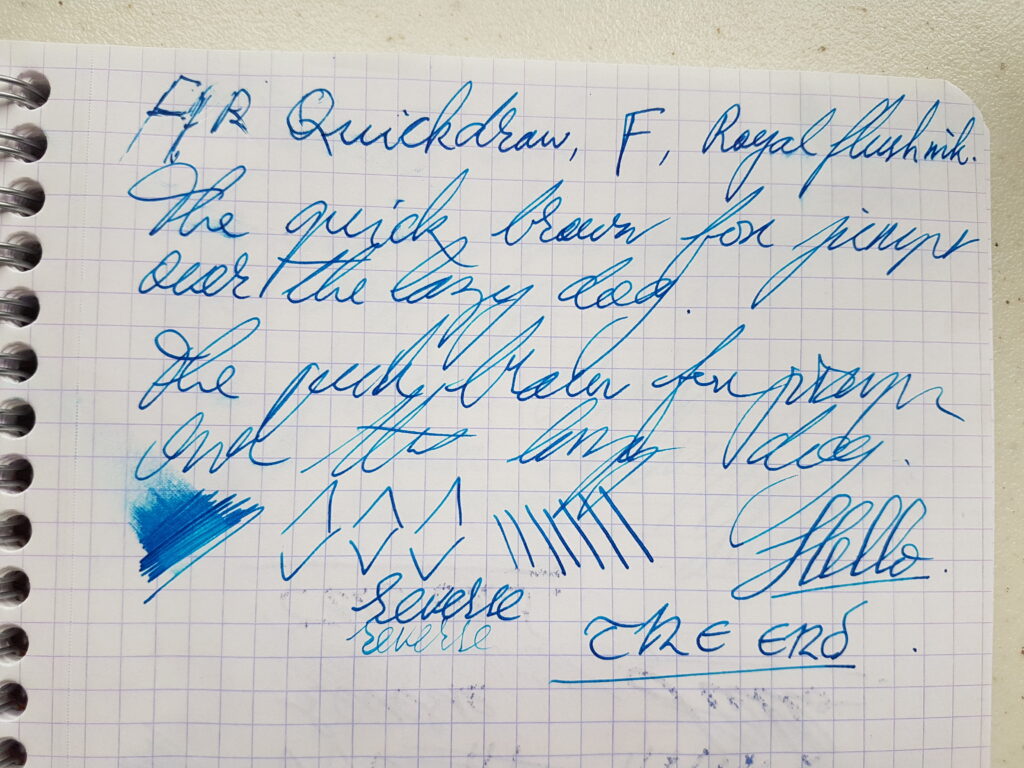 Quickdraw, F, Royal flush ink.
The quick brown fox jumps
over the lazy dog.
The quick brown fox jumps
over the lazy dog.
Hello.
reverse
reverse
THE END.